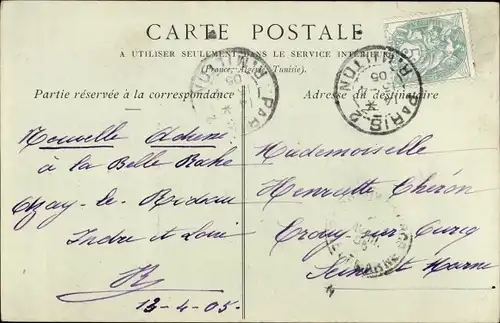 CARTE POSTALE
A UTILISER SEULEMENT DANS LE SERVICE INTÉRIEUR
(France, Algérie, Tunisie).
Partie réservée à la correspondance
Adresse du destinataire
Nouvelle Adresse
à la Belle Rahe
Azay-le-Rideau
Indre et Loire
13-4-05.
Mademoiselle
Henriette Chéron
Crouy-sur-Ourcq
Seine et Marne
PARIS 2
R. MILTON
05
PAR
R. MILTON
05